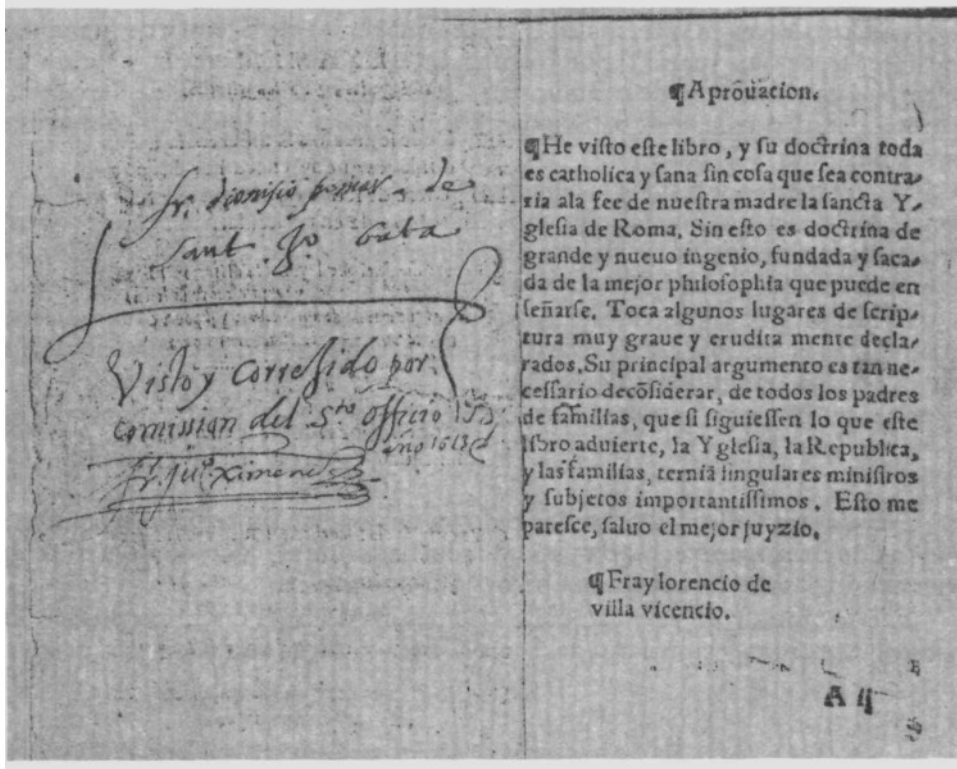 fr. dionisio pomar de
Sant Jº. bata
Visto y corregido por
comission del Sto officio
año 1613
fr. juº. Ximenes
¶Aprouacion.
¶He visto este libro, y su doctrina toda
es catholica y sana sin cosa que sea contra-
ria ala fee de nuestra madre la sancta Y-
glesia de Roma. Sin esto es doctrina de
grande y nueuo ingenio, fundada y saca-
da de la mejor philosophia que puede en
señarse. Toca algunos lugares de scrip-
tura muy graue y erudita mente decla-
rados. Su principal argumento es tan ne-
cessario decõsiderar, de todos los padres
de familias, que si siguiessen lo que este
libro aduierte, la Yglesia, la Republica,
y las familias, terniã singulares ministros
y subjetos importantissimos. Esto me
paresce, saluo el mejor juyzio.
¶Fray lorencio de
villa vicencio.
A ij